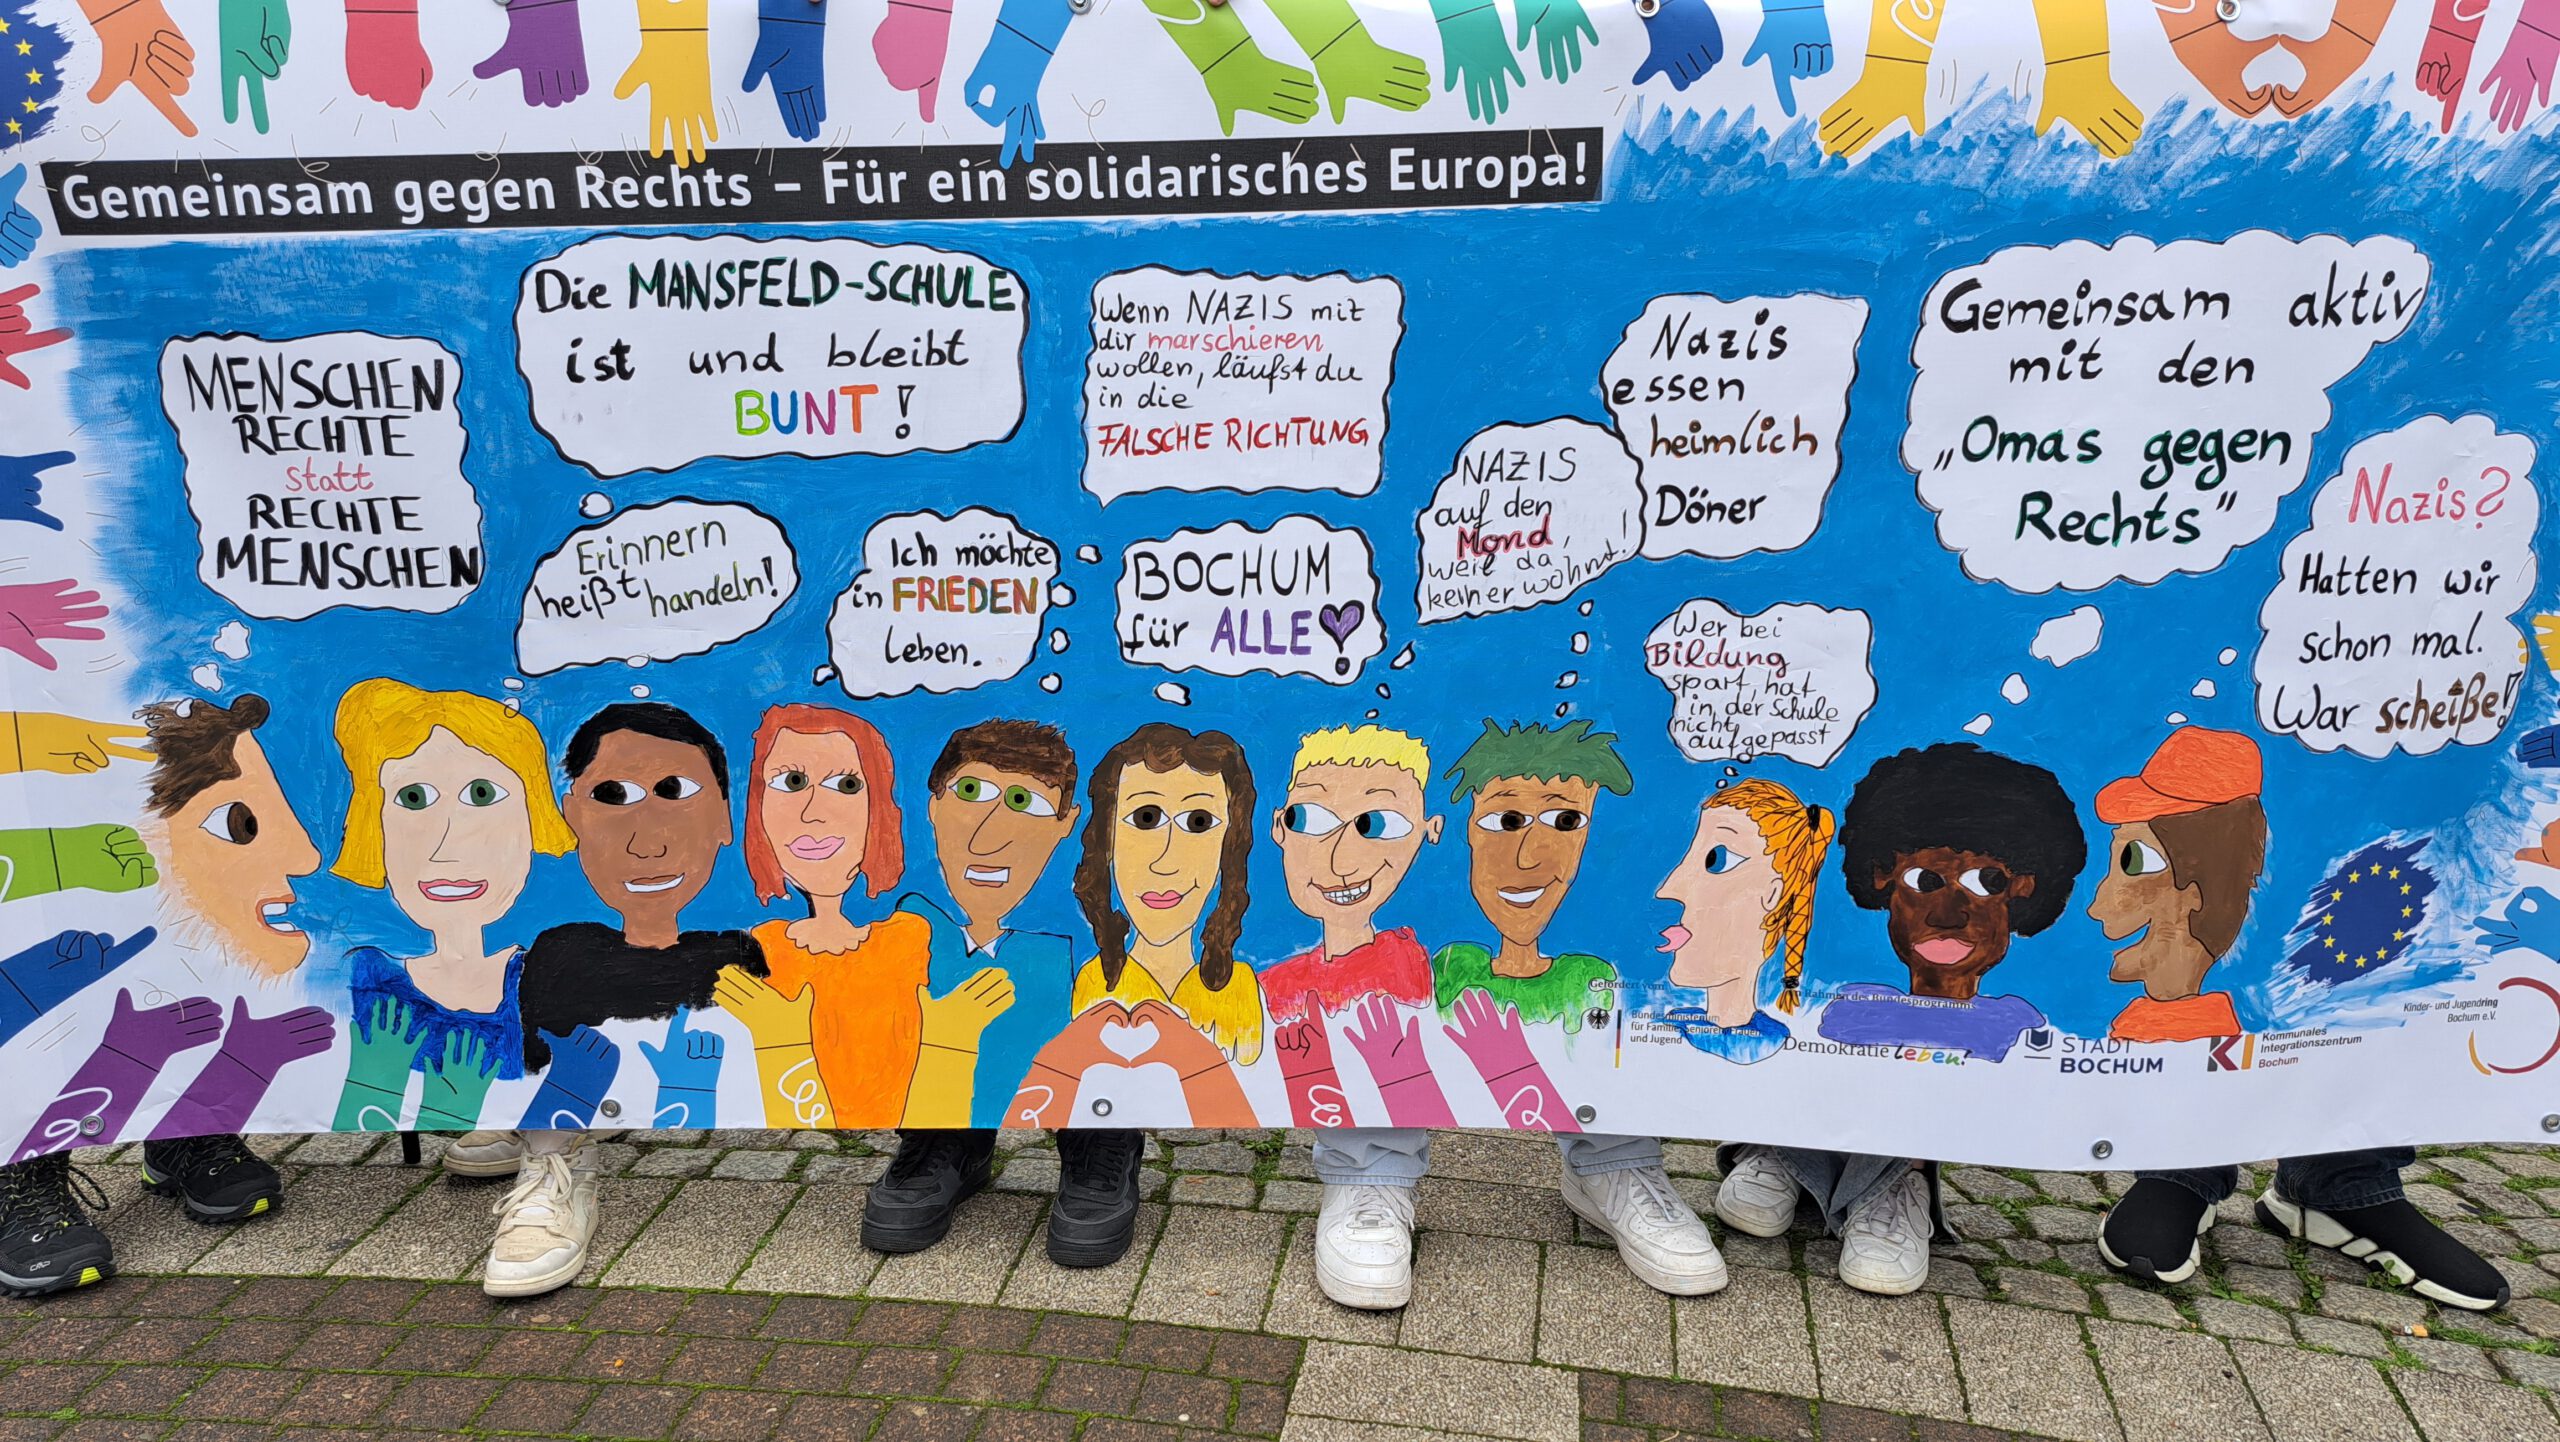 Gemeinsam gegen Rechts – Für ein solidarisches Europa!
MENSCHEN
RECHTE
statt
RECHTE
MENSCHEN
Die MANSFELD-SCHULE
ist und bleibt
BUNT!
Erinnern
heißt handeln!
Ich möchte
in FRIEDEN
leben.
Wenn NAZIS mit
dir marschieren
wollen, läufst du
in die
FALSCHE RICHTUNG
BOCHUM
für ALLE
NAZIS
auf den
Mond,
weil da
keiner wohnt!
Nazis
essen
heimlich
Döner
Wer bei
Bildung
spart, hat
in der Schule
nicht
aufgepasst
Gemeinsam aktiv
mit den
„Omas gegen
Rechts"
Nazis?
Hatten wir
schon mal.
War scheiße!
Gefördert vom
Bundesministerium
für Familie, Senioren, Frauen
und Jugend
im Rahmen des Bundesprogramms
Demokratie leben!
STADT
BOCHUM
KI
Kommunales
Integrationszentrum
Bochum
Kinder- und Jugendring
Bochum e.V.
CMP